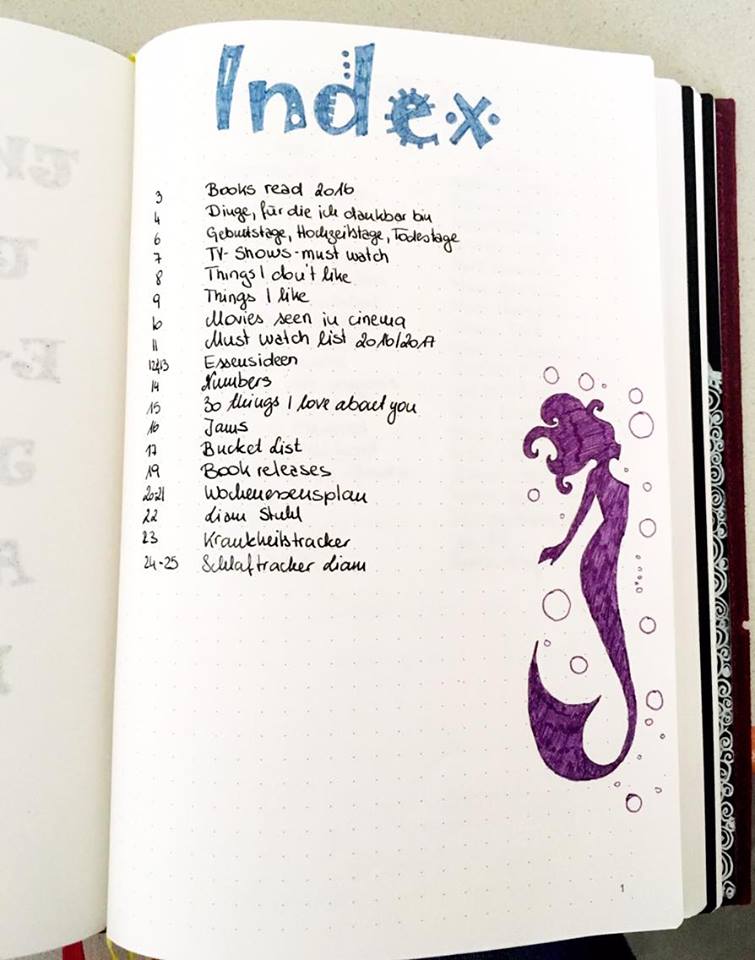 Index
3 Books read 2016
4 Dinge, für die ich dankbar bin
6 Geburtstage, Hochzeitstage, Todestage
7 TV-Shows-must watch
8 Things I don't like
9 Things I like
10 Movies seen in cinema
11 Must watch list 2016/2017
12/13 Essensideen
14 Numbers
15 30 things I love about you
16 Jams
17 Bucket List
19 Book releases
20+21 Wochenessensplan
22 Liam Stuhl
23 Krankheitstracker
24-25 Schlaftracker Liam
1